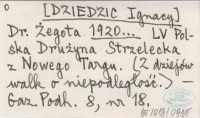 0
[DZIEDZIC Ignacy]
Dr. Żegota 1920... LV Pol-
ska Drużyna Strzelecka
z Nowego Targu. (Z dziejów
walk o niepodległość.) —
Gaz. Podh. 8, nr 18.